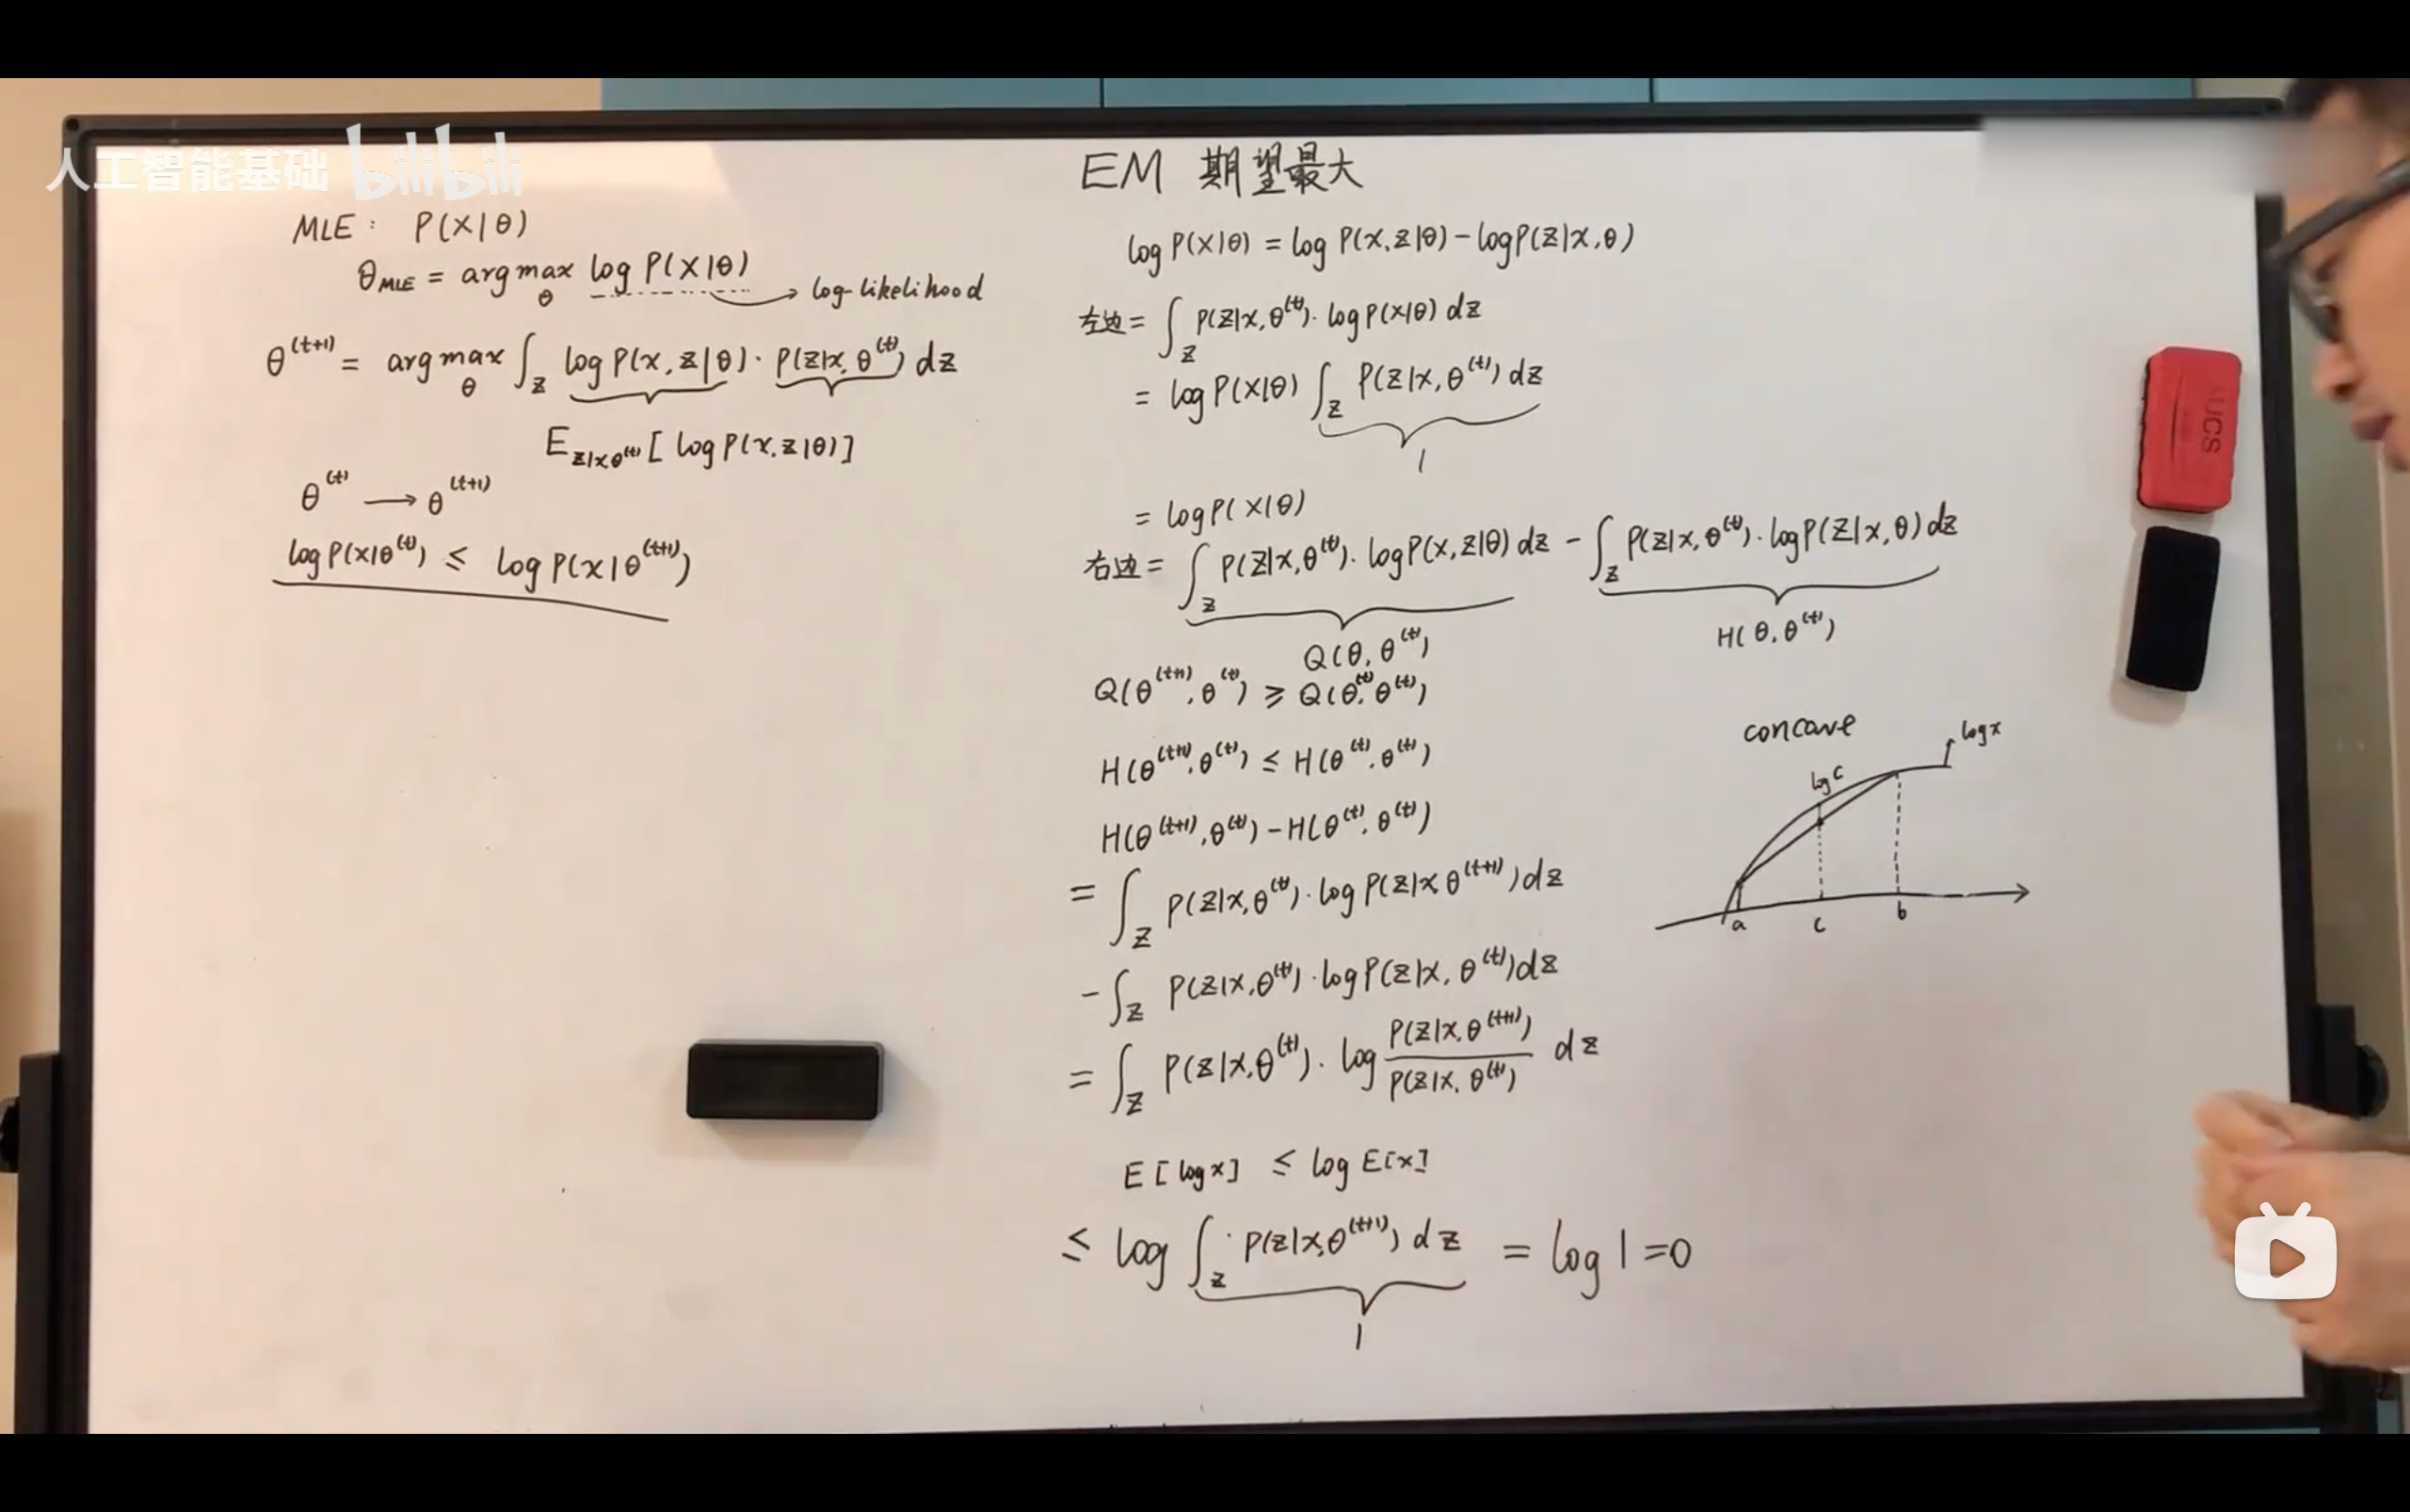 人工智能基础 bilibili
EM 期望最大
MLE: P(X|θ)
θ_MLE = argmax_θ log P(X|θ) → log-likelihood
θ^(t+1) = argmax_θ ∫_z log P(x,z|θ)·P(z|x,θ^(t)) dz
E_z|xθ^(t) [log P(x,z|θ)]
θ^(t) → θ^(t+1)
log P(x|θ^(t)) ≤ log P(x|θ^(t+1))
log P(x|θ) = log P(x,z|θ) - log P(z|x,θ)
左边 = ∫_z P(z|x,θ^(t))·log P(x|θ) dz
= log P(x|θ) ∫_z P(z|x,θ^(t)) dz
1
= log P(x|θ)
右边 = ∫_z P(z|x,θ^(t))·log P(x,z|θ) dz - ∫_z P(z|x,θ^(t))·log P(z|x,θ) dz
Q(θ,θ^(t))
H(θ,θ^(t))
Q(θ^(t+1),θ^(t)) ≥ Q(θ^(t),θ^(t))
H(θ^(t+1),θ^(t)) ≤ H(θ^(t),θ^(t))
H(θ^(t+1),θ^(t)) - H(θ^(t),θ^(t))
= ∫_z P(z|x,θ^(t))·log P(z|x θ^(t+1)) dz
- ∫_z P(z|x,θ^(t))·log P(z|x,θ^(t)) dz
= ∫_z P(z|x,θ^(t))·log P(z|x,θ^(t+1))/P(z|x,θ^(t)) dz
E[log x] ≤ log E[x]
≤ log ∫_z P(z|x,θ^(t+1)) dz = log 1 = 0
1
concave
log x
log c
a c b
UCS